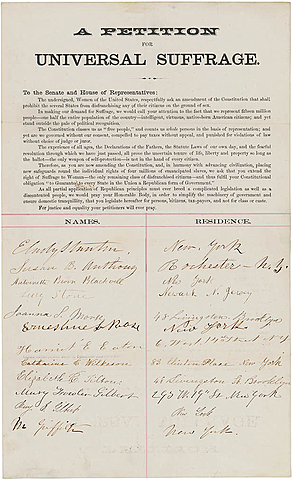 A PETITION
FOR
UNIVERSAL SUFFRAGE.
To the Senate and House of Representatives:
The undersigned, Women of the United States, respectfully ask an amendment of the Constitution that shall
prohibit the several States from disfranchising any of their citizens on the ground of sex.
In making our demand for Suffrage, we would call your attention to the fact that we represent fifteen million
people—one half the entire population of the country—intelligent, virtuous, native-born American citizens; and yet
stand outside the pale of political recognition.
The Constitution classes us as "free people," and counts us whole persons in the basis of representation; and yet
are we governed without our consent, compelled to pay taxes without appeal, and punished for violations of law
without choice of judge or juror.
The experience of all ages, the Declarations of the Fathers, the Statute Laws of our own day, and the fearful
revolution through which we have just passed, all prove the uncertain tenure of life, liberty and property so long as
the ballot—the only weapon of self-protection—is not in the hand of every citizen.
Therefore, as you are now amending the Constitution, and, in harmony with advancing civilization, placing
new safeguards round the individual rights of four millions of emancipated slaves, we ask that you extend the
right of Suffrage to Woman—the only remaining class of disfranchised citizens—and thus fulfil your Constitutional
obligation "to Guarantee to every State in the Union a Republican form of Government."
As all partial application of Republican principles must ever breed a complicated legislation as well as a
discontented people, we would pray your Honorable Body, in order to simplify the machinery of government and
ensure domestic tranquillity, that you legislate hereafter for persons, citizens, tax-payers, and not for class or caste.
For justice and equality your petitioners will ever pray.
NAMES. RESIDENCE.
E Cady Stanton New York
Susan B. Anthony Rochester - N.Y.
Antoinette Brown Blackwell New York
Lucy Stone Newark N. Jersey
Joanna S. Morse 48 Livingston. Brooklyn
Ernestine L Rose New York
Harriet E. Eaton
Catharine C. Wilkeson 83 Clinton Place New York
Elizabeth R. Tilton 48 Livingston St. Brooklyn
Mary Fowler Gilbert 293 W. 19th St New York
New York
M. Griffith New York.